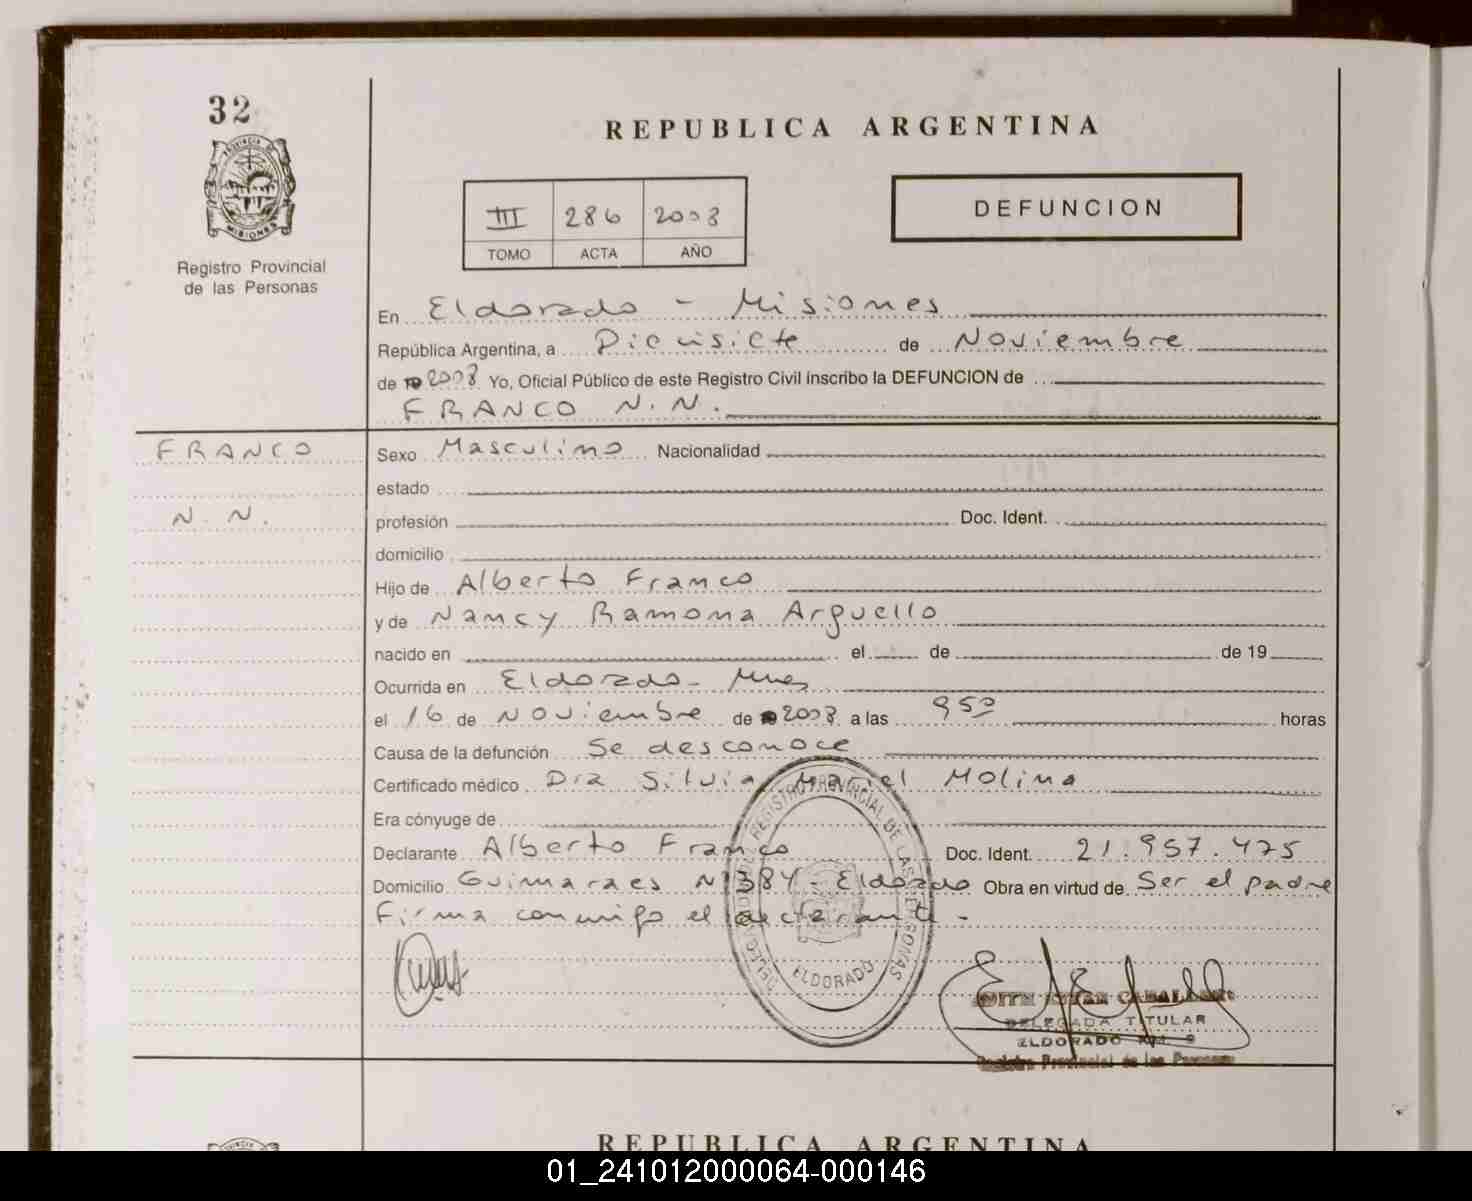 32
REPUBLICA ARGENTINA
III 286 2008
TOMO ACTA AÑO
DEFUNCION
PROVINCIA DE
MISIONES
Registro Provincial
de las Personas
En Eldorado - Misiones
República Argentina, a Diecisiete de Noviembre
de 2008 Yo, Oficial Público de este Registro Civil inscribo la DEFUNCION de
FRANCO N. N.
FRANCO
N. N.
Sexo Masculino Nacionalidad
estado
profesión Doc. Ident.
domicilio
Hijo de Alberto Franco
y de Nancy Ramona Arguello
nacido en el de de 19
Ocurrida en Eldorado - Mnes
el 16 de Noviembre de 2008 a las 9 50 horas
Causa de la defunción Se desconoce
Certificado médico Dra Silvia Mariel Molina
Era cónyuge de
Declarante Alberto Franco Doc. Ident. 21.957.475
Domicilio Guimaraes N° 384 - Eldorado Obra en virtud de Ser el padre
Firma conmigo el declarante -
REGISTRO PROVINCIAL DE LAS PERSONAS
ELDORADO
DELEGADA TITULAR
ELDORADO
Registro Provincial de las Personas
REPUBLICA ARGENTINA
01_241012000064-000146